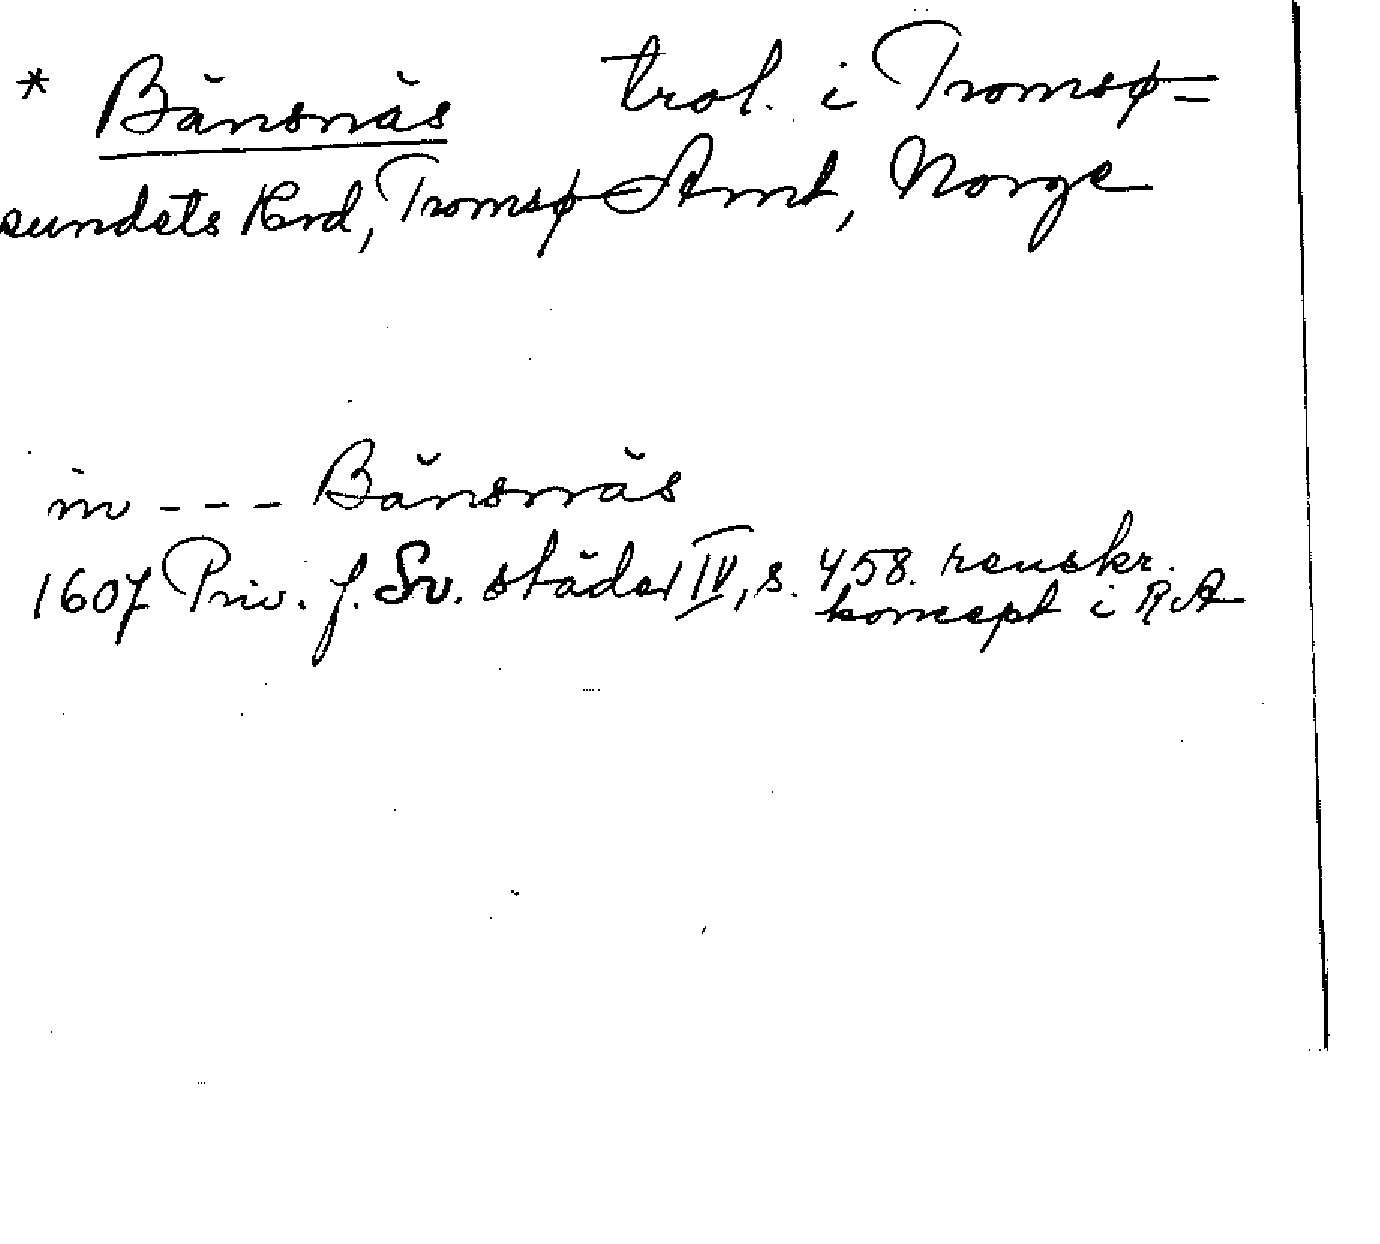 * Bänsnäs trol. i Tromsø-
sundets Hrd, Tromsø Amt, Norge
in --- Bänsnäs
1607 Priv. f. Sv. städer IV, s. 458. renskr.
koncept i RA